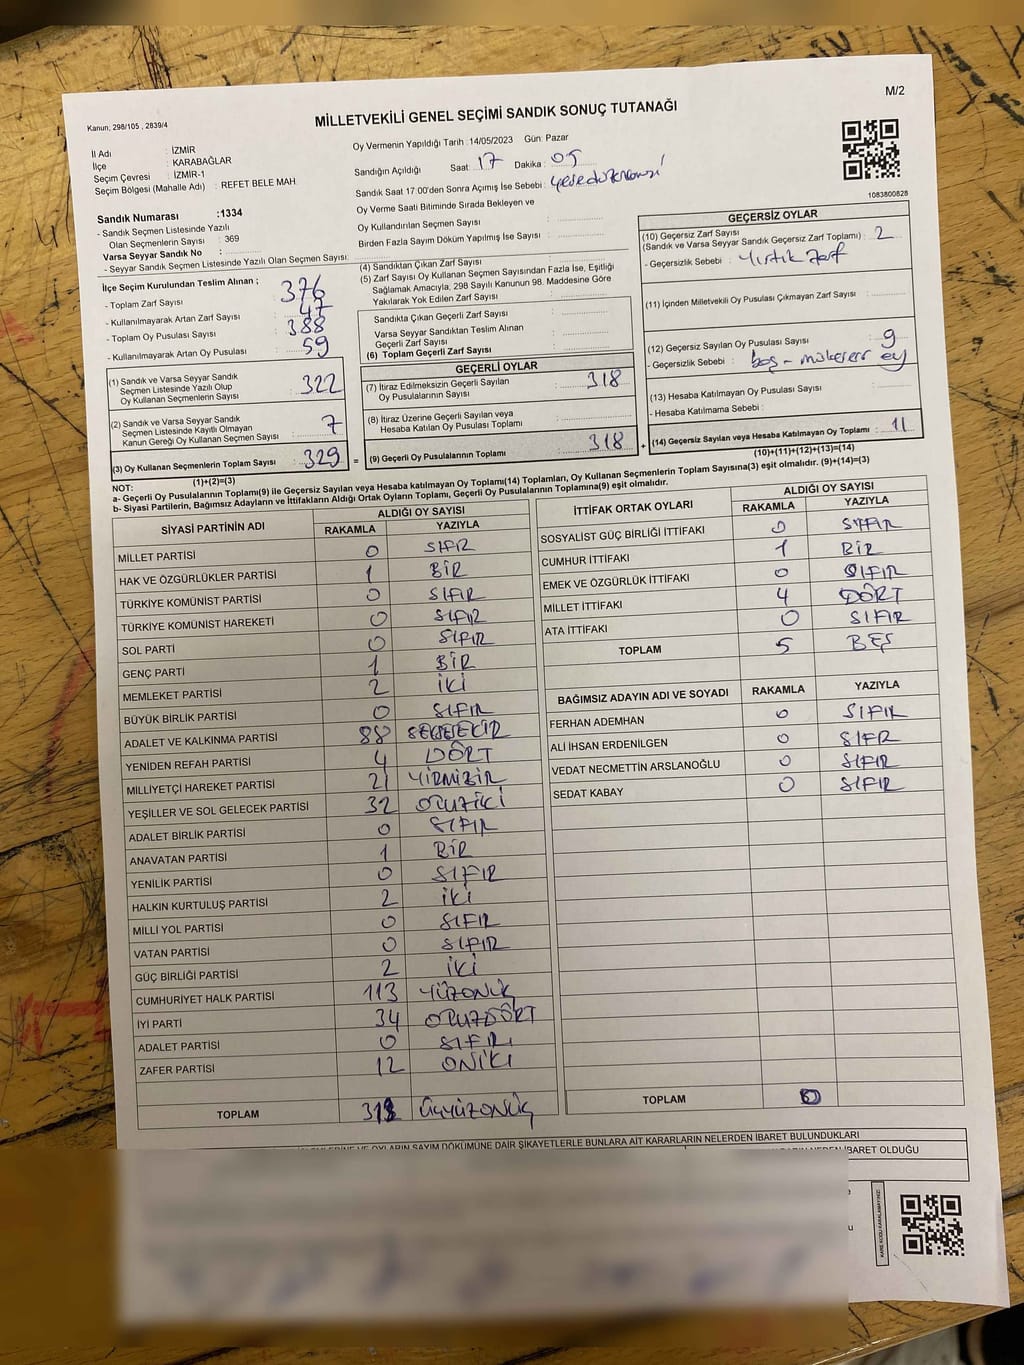 M/2
Kanun; 298/105 , 2839/4
MİLLETVEKİLİ GENEL SEÇİMİ SANDIK SONUÇ TUTANAĞI
İl Adı : İZMİR
İlçe : KARABAĞLAR
Seçim Çevresi : İZMİR-1
Seçim Bölgesi (Mahalle Adı) : REFET BELE MAH.
Sandık Numarası :1334
- Sandık Seçmen Listesinde Yazılı
Olan Seçmenlerin Sayısı : 369
Varsa Seyyar Sandık No :
- Seyyar Sandık Seçmen Listesinde Yazılı Olan Seçmen Sayısı:
Oy Vermenin Yapıldığı Tarih :14/05/2023 Gün: Pazar
Sandığın Açıldığı Saat : 17 Dakika : 05
Sandık Saat 17:00'den Sonra Açımış İse Sebebi :
Oy Verme Saati Bitiminde Sırada Bekleyen ve
Oy Kullandırılan Seçmen Sayısı :
Birden Fazla Sayım Döküm Yapılmış İse Sayısı :
1083800828
İlçe Seçim Kurulundan Teslim Alınan ;
- Toplam Zarf Sayısı : 376
- Kullanılmayarak Artan Zarf Sayısı : 47
- Toplam Oy Pusulası Sayısı : 388
- Kullanılmayarak Artan Oy Pusulası : 59
(1) Sandık ve Varsa Seyyar Sandık
Seçmen Listesinde Yazılı Olup
Oy Kullanan Seçmenlerin Sayısı : 322
(2) Sandık ve Varsa Seyyar Sandık
Seçmen Listesinde Kayıtlı Olmayan
Kanun Gereği Oy Kullanan Seçmen Sayısı : 7
(3) Oy Kullanan Seçmenlerin Toplam Sayısı : 329 =
(1)+(2)=(3)
(4) Sandıktan Çıkan Zarf Sayısı :
(5) Zarf Sayısı Oy Kullanan Seçmen Sayısından Fazla İse, Eşitliği
Sağlamak Amacıyla, 298 Sayılı Kanunun 98. Maddesine Göre
Yakılarak Yok Edilen Zarf Sayısı :
Sandıkta Çıkan Geçerli Zarf Sayısı :
Varsa Seyyar Sandıktan Teslim Alınan
Geçerli Zarf Sayısı :
(6) Toplam Geçerli Zarf Sayısı :
GEÇERLİ OYLAR
(7) İtiraz Edilmeksizin Geçerli Sayılan
Oy Pusulalarının Sayısı : 318
(8) İtiraz Üzerine Geçerli Sayılan veya
Hesaba Katılan Oy Pusulası Toplamı :
(9) Geçerli Oy Pusulalarının Toplamı : 318 +
GEÇERSİZ OYLAR
(10) Geçersiz Zarf Sayısı
(Sandık ve Varsa Seyyar Sandık Geçersiz Zarf Toplamı) : 2
- Geçersizlik Sebebi : Yırtık Zarf
(11) İçinden Milletvekili Oy Pusulası Çıkmayan Zarf Sayısı :
(12) Geçersiz Sayılan Oy Pusulası Sayısı : 9
- Geçersizlik Sebebi : boş - mükerrer oy
(13) Hesaba Katılmayan Oy Pusulası Sayısı :
- Hesaba Katılmama Sebebi :
(14) Geçersiz Sayılan veya Hesaba Katılmayan Oy Toplamı : 11
(10)+(11)+(12)+(13)=(14)
NOT:
a- Geçerli Oy Pusulalarının Toplamı(9) ile Geçersiz Sayılan veya Hesaba katılmayan Oy Toplamı(14) Toplamları, Oy Kullanan Seçmenlerin Toplam Sayısına(3) eşit olmalıdır. (9)+(14)=(3)
b- Siyasi Partilerin, Bağımsız Adayların ve İttifakların Aldığı Ortak Oyların Toplamı, Geçerli Oy Pusulalarının Toplamına(9) eşit olmalıdır.
SİYASİ PARTİNİN ADI ALDIĞI OY SAYISI
RAKAMLA YAZIYLA
MİLLET PARTİSİ 0 SIFIR
HAK VE ÖZGÜRLÜKLER PARTİSİ 1 BİR
TÜRKİYE KOMÜNİST PARTİSİ 0 SIFIR
TÜRKİYE KOMÜNİST HAREKETİ 0 SIFIR
SOL PARTİ 0 SIFIR
GENÇ PARTİ 1 BİR
MEMLEKET PARTİSİ 2 İKİ
BÜYÜK BİRLİK PARTİSİ 0 SIFIR
ADALET VE KALKINMA PARTİSİ 88
YENİDEN REFAH PARTİSİ 4 DÖRT
MİLLİYETÇİ HAREKET PARTİSİ 21 YİRMİBİR
YEŞİLLER VE SOL GELECEK PARTİSİ 32 OTUZİKİ
ADALET BİRLİK PARTİSİ 0 SIFIR
ANAVATAN PARTİSİ 1 BİR
YENİLİK PARTİSİ 0 SIFIR
HALKIN KURTULUŞ PARTİSİ 2 İKİ
MİLLİ YOL PARTİSİ 0 SIFIR
VATAN PARTİSİ 0 SIFIR
GÜÇ BİRLİĞİ PARTİSİ 2 İKİ
CUMHURİYET HALK PARTİSİ 113 YÜZONÜÇ
İYİ PARTİ 34 OTUZDÖRT
ADALET PARTİSİ 0 SIFIR
ZAFER PARTİSİ 12 ONİKİ
TOPLAM ÜÇYÜZONÜÇ
İTTİFAK ORTAK OYLARI ALDIĞI OY SAYISI
RAKAMLA YAZIYLA
SOSYALİST GÜÇ BİRLİĞİ İTTİFAKI 0 SIFIR
CUMHUR İTTİFAKI 1 BİR
EMEK VE ÖZGÜRLÜK İTTİFAKI 0 SIFIR
MİLLET İTTİFAKI 4 DÖRT
ATA İTTİFAKI 0 SIFIR
TOPLAM 5 BEŞ
BAĞIMSIZ ADAYIN ADI VE SOYADI RAKAMLA YAZIYLA
FERHAN ADEMHAN 0 SIFIR
ALİ İHSAN ERDENİLGEN 0 SIFIR
VEDAT NECMETTİN ARSLANOĞLU 0 SIFIR
SEDAT KABAY 0 SIFIR
TOPLAM
OYLARIN SAYIM DÖKÜMÜNE DAİR ŞİKAYETLERLE BUNLARA AİT KARARLARIN NELERDEN İBARET BULUNDUKLARI
İBARET OLDUĞU
KARE KODU KARALAMAYINIZ!